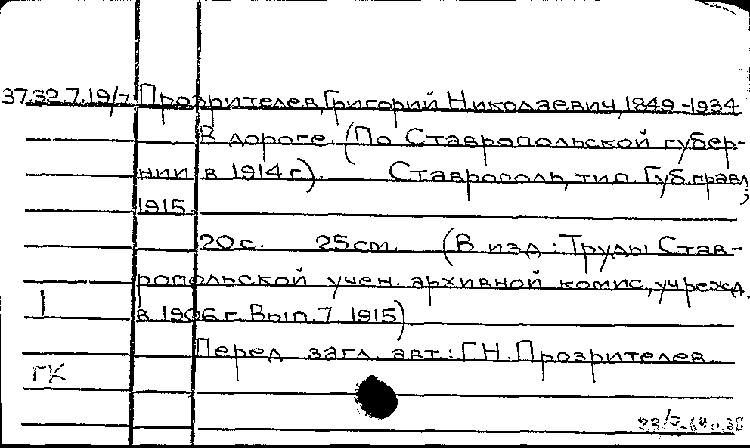 37.32.7.19/7 Прозрителев, Григорий Николаевич, 1849-1934
В дороге. (По Ставропольской губер-
нии в 1914 г.). Ставрополь, тип. Губ. правл.,
1915.
20 с. 25 см. (В изд.: Труды Став-
ропольской учен. архивной комис., учрежд.
в 1906 г. Вып. 7. 1915)
1
Перед загл. авт.: Г.Н. Прозрителев.
ГК